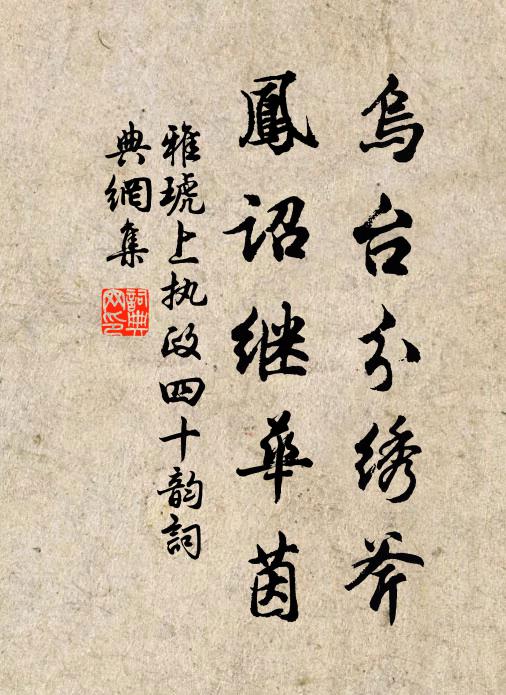 乌台分绣斧
鳳诏继華茵
雅琥上执政四十韵詞
典網集
詞典
网印